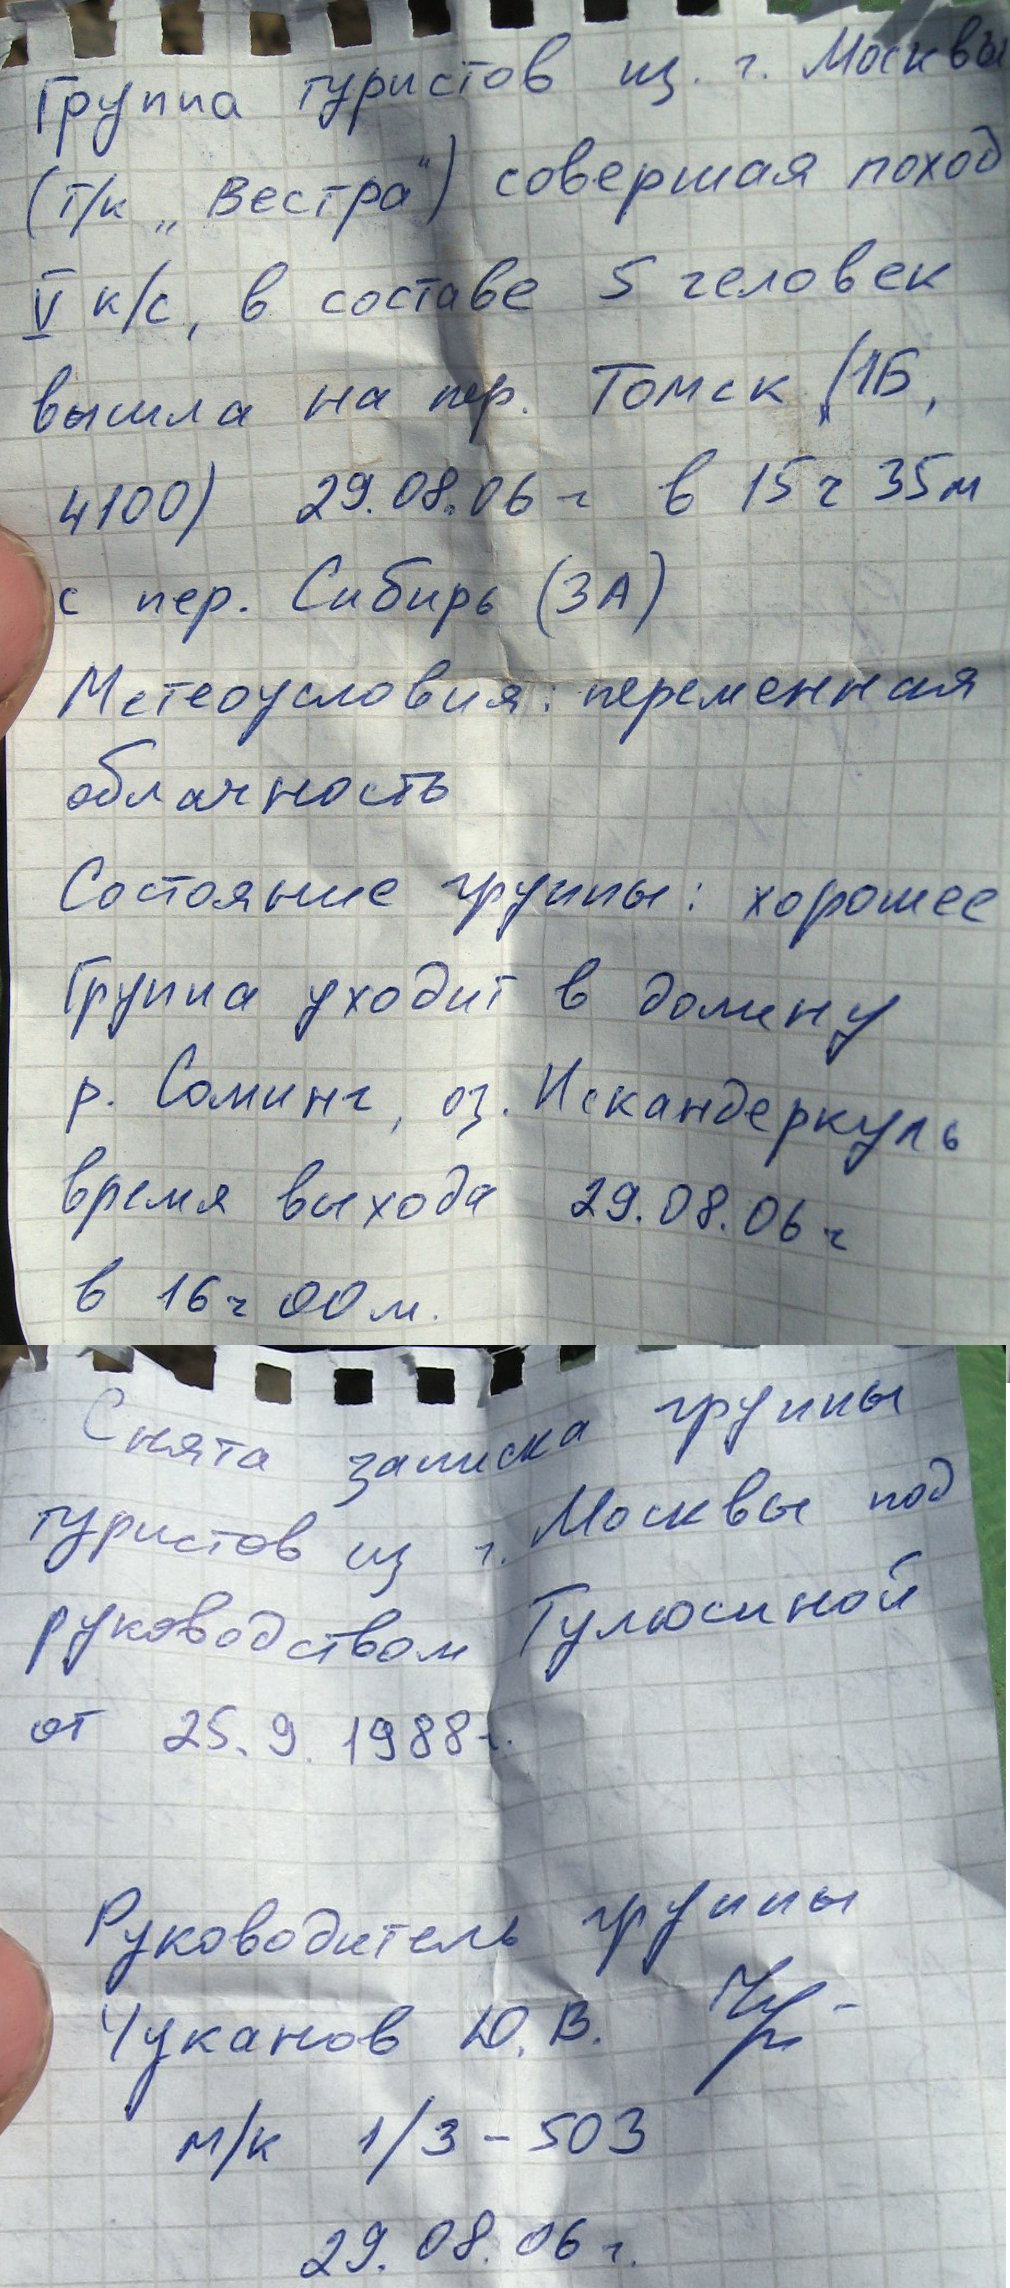 Группа туристов из г. Москвы
(т/к „Вестра") совершая поход
V к/с, в составе 5 человек
вышла на пер. Томск (1Б,
4100) 29.08.06 г в 15ч 35м
с пер. Сибирь (3А)
Метеоусловия: переменная
облачность
Состояние группы: хорошее
Группа уходит в долину
р. Соминг, оз. Искандеркуль
время выхода 29.08.06 г
в 16ч 00м.
Снята записка группы
туристов из г. Москвы под
руководством Тулюсиной
от 25.9.1988г.
Руководитель группы
Чуканов Ю.В.
м/к 1/3-503
29.08.06 г.